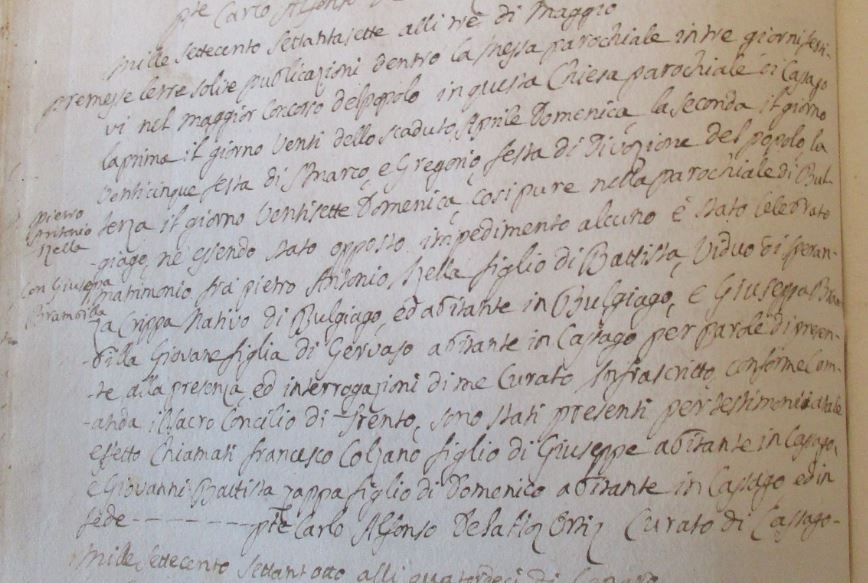 pte Carlo Alfonso
mille settecento settantasette alli tre di Maggio
premesse le tre solite publicazioni dentro la Messa parochiale in tre giorni festi-
vi nel maggior concorso del popolo in questa Chiesa parochiale di Casago
la prima il giorno venti dello scaduto Aprile Domenica, la seconda il giorno
venticinque festa di S Marco, e Gregorio festa di Divozione del popolo, la
terza il giorno ventisette Domenica, cosi pure nella parochiale di Bul-
-giago, nè essendo stato opposto impedimento alcuno è stato celebrato
matrimonio fra pietro Antonio Nella figlio di Battista, Viduo di Speran-
-za Crippa Nativo di Bulgiago, ed abitante in Bulgiago, e Giuseppa Bram
-billa Giovane figlia di Gervaso abitante in Casago per parole di presen-
-te alla presenza, ed interrogazioni di me Curato Infrascritto, conforme Com-
-anda il Sacro Concilio di Trento, sono stati presenti per testimonii a tale
effetto Chiamati francesco Colzano figlio di Giuseppe abitante in Casago,
e Giovanni Battista Zappa figlio di Domenico abitante in Casago ed in
fede - - - - - - - - pte Carlo Alfonso Curato di Casago-
mille settecento settant otto alli quatordeci di
pietro
Antonio
Nella
Con Giuseppa
Brambilla